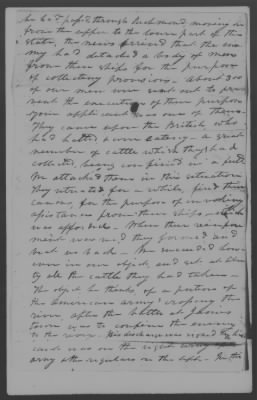 he had passed through Richmond, moving on
from the upper to the lower part of the
State, the news arrived that the ene
my had detached a body of men
from their ships for the purpose
of collecting provisions. About 300
of our men were sent out to pre
vent the execution of their purpose
your applicant was one of them.
They came upon the British who
had halted & were eating - a great
number of cattle which they had
collected, being confined in a field
We attacked them in this situation
They retreated for a while, fired their
cannon, for the purpose of invoking
assistance from their ships - which
was afforded. When their reinforce
ment was recd they formed and
beat us back. We succeeded how
ever in our object, and set at liber
ty all the cattle they had taken.
The object he thinks, of a portion of
the American army's crossing the
river, after the battle at James
Town was to confine the enemy
to the river. His discharge was signed
cards was on the right wing of the
army & the regulars in the left. In this